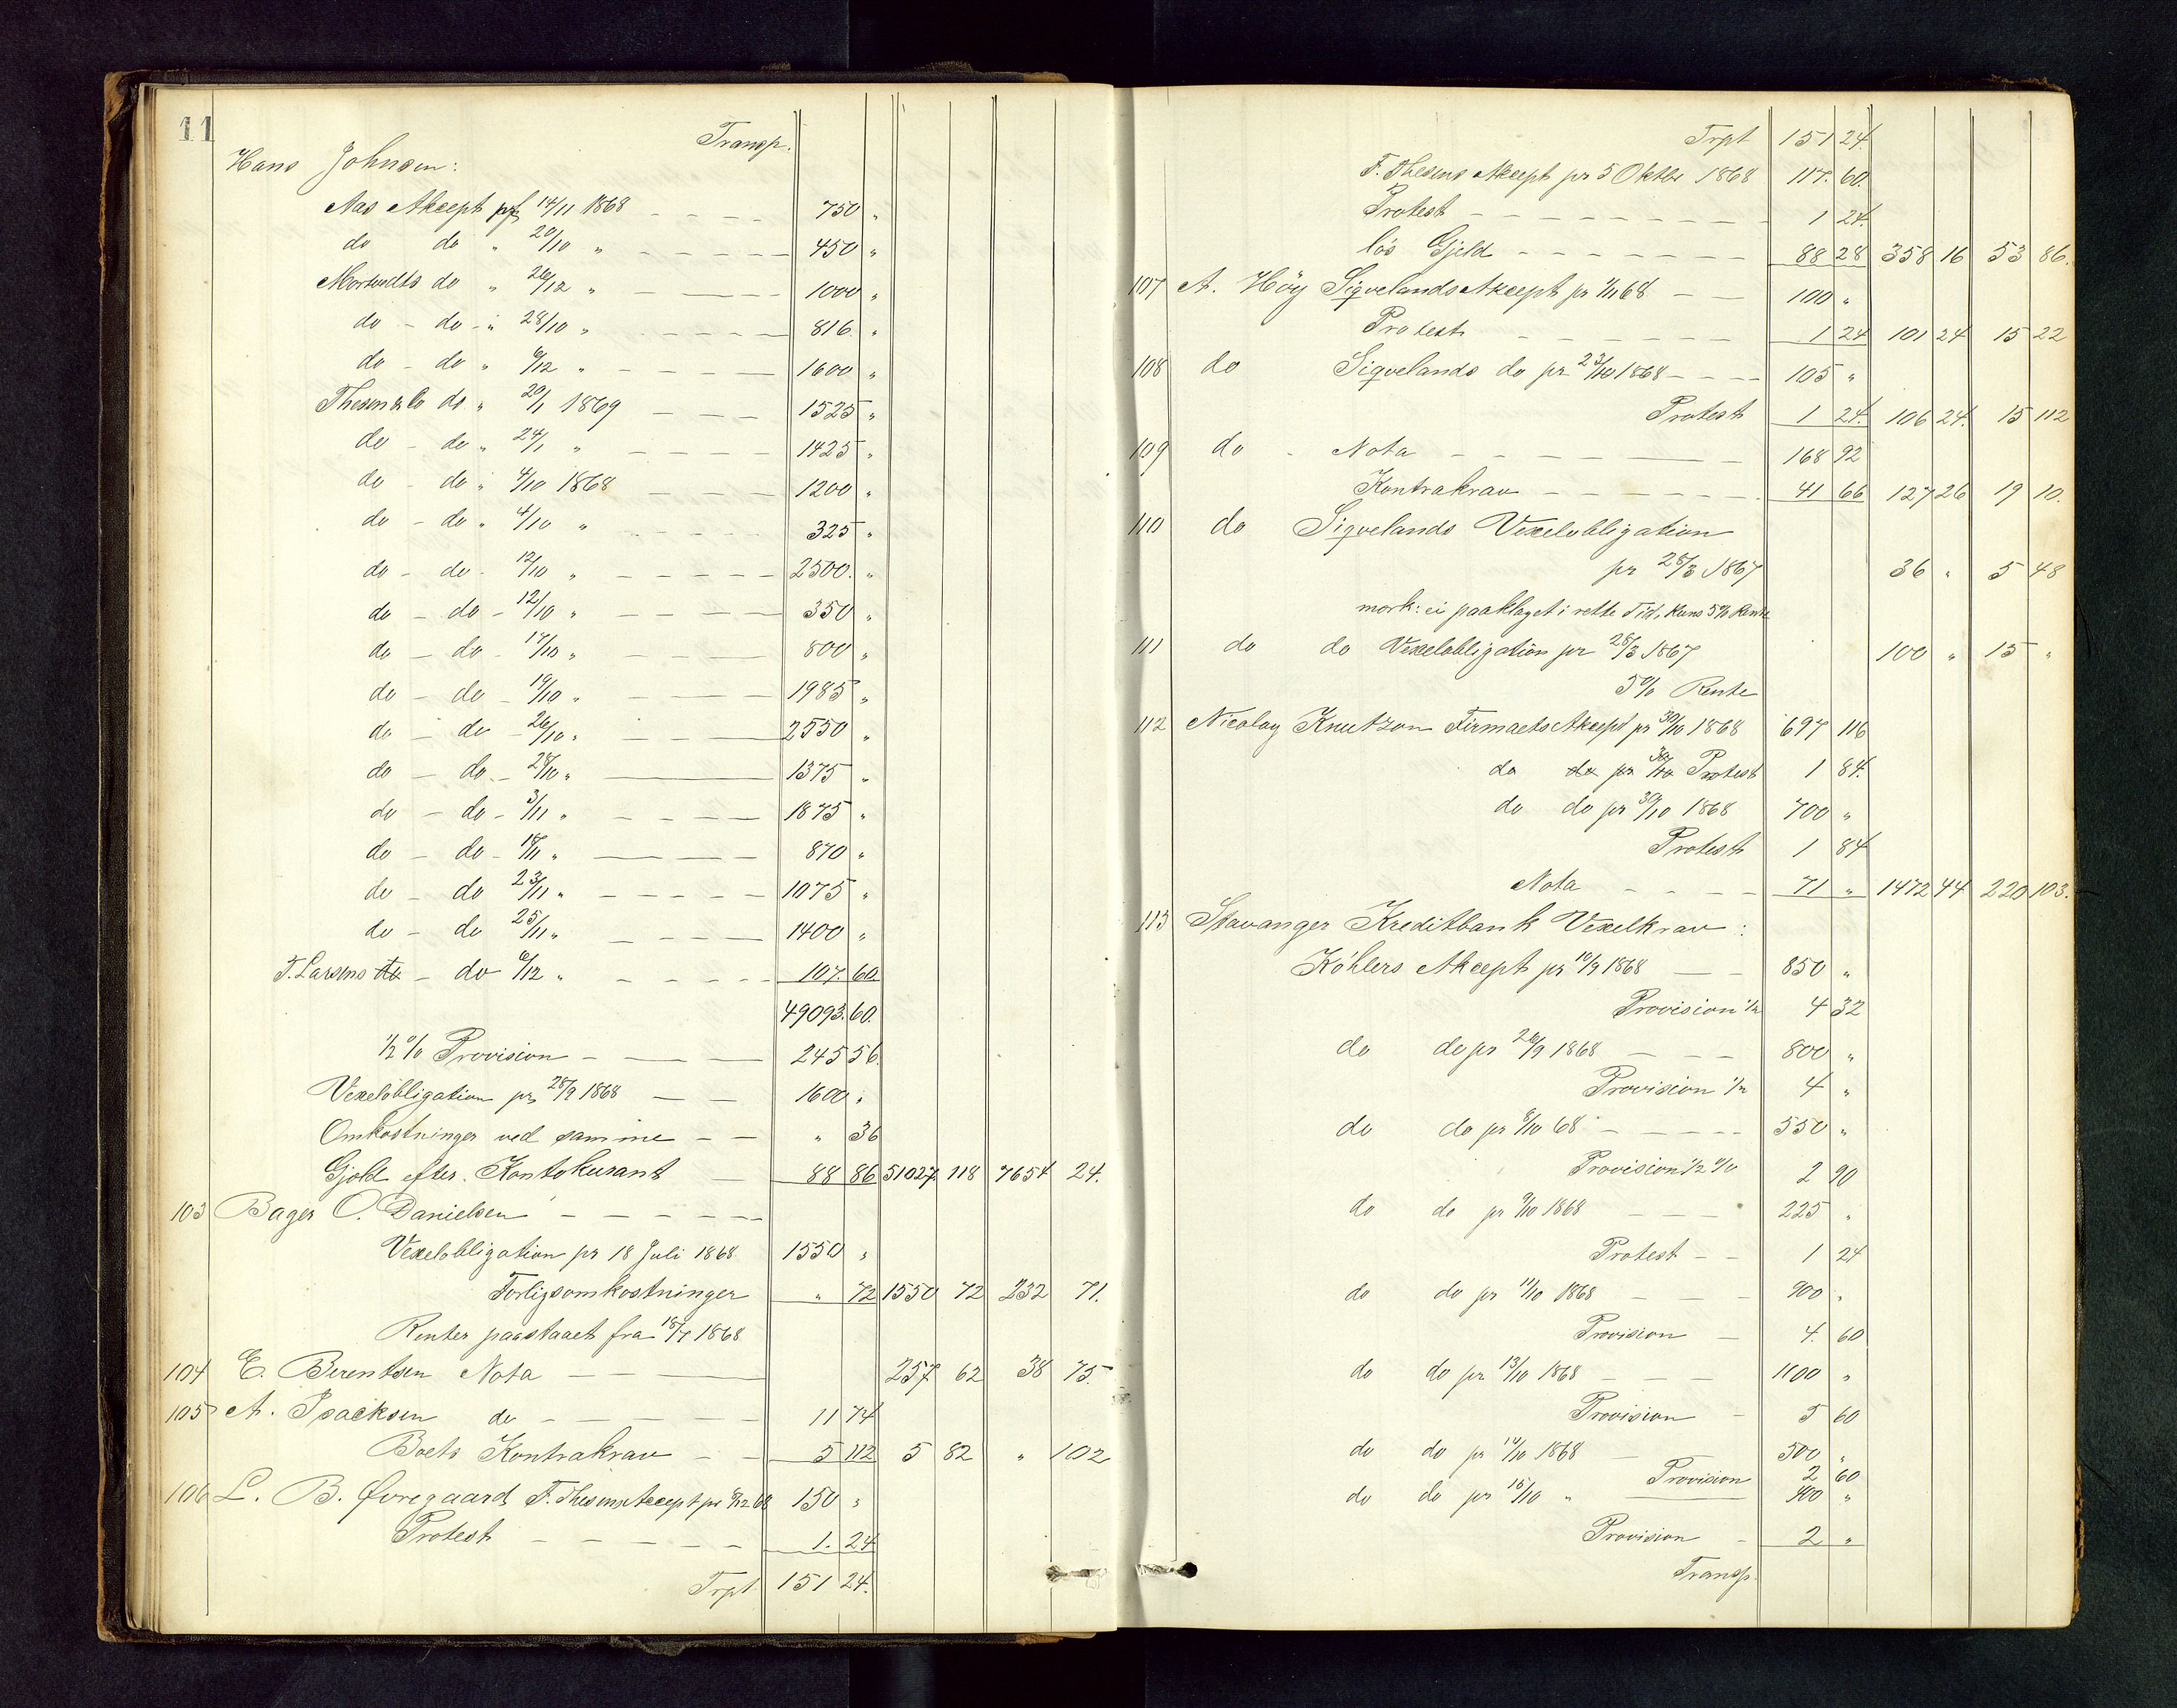 11
Transp.
Hans Johnsen:
Aas Akcept pr 14/11 1868 — — — — 750 "
do do " 20/10 " — — — — — 450 "
do " 26/12 " — — — — 1000 "
do - do - " 28/10 " — — — — 816 "
do - do " 6/12 " — — — — 1600 "
Thesen & Co do " 20/1 1869 — — — 1525 "
do - do " 24/1 " — — — — 1425 "
do - do " 4/10 1868 — — — 1200 "
do - do " 4/10 " — — — — 325 "
do - do - 12/10 " — — — — — 2500. "
do - do - 12/10 " — — — — 350 "
do - do - 17/10 " — — — 800 "
do - do - 19/10 " — — — 1985 "
do - do - 26/10 " — — — 2550 "
do - do - 28/10 " — 1375 "
do - do - 3/11 " — — — — 1875 "
do - do - 18/11 " — — — 870 "
do - do 23/11 " — — — — — 1075 "
do - do 25/11 " — — — — 1400 "
T. Larsens do - do 6/12 " — — — — 107. 60
49093. 60.
1/2 % Provision — — — 245 56
Vexelobligation pr 28/9 1868 — — 1600 "
Omkostninger ved samme — — " 36
Gjeld efter Kontokurant — 88 86 51027. 118 7654 24.
103 Bager O. Danielsen — — — — —
Vexelobligation pr 18 Juli 1868 1550 "
Forligsomkostninger " 72 1550 72 232 71.
Renter paastaaet fra 18/7 1868
104 E. Berentsen Nota — — — 257 62 38 75.
105 A. Isacksen do — — — — — 11 74
Boets Kontrakrav — — 5 112 5 82 " 102
106 L. B. Øvregaard F. Thesens Accept pr 6/12 68 150 "
Protest — — — — — 1. 24
Trpt 151 24.
Trpt 151 24.
F. Thesens Akcept pr 5 Oktbr 1868 117. 60.
Protest — — — — — — — — 1 24.
lös Gjeld — — — — — — — 88 28 358 16 53 86.
107 A. Höy Siqvelands Akcept pr 1/11 68 — — 100 "
Protest — — — — — — 1 24 101 24 15 22
108 do Siqvelands do pr 23/10 1868 — — — 105 "
Protest 1 24. 106 24. 15 112
109 do - Nota — — — — — — 168 92
Kontrakrav — — — — — — 41 66 127 26 19 10.
110 do Siqvelands Vexelobligation
pr 28/3 1867 36 " 5 48
mærk: ei paaklaget i rette Tid, kuns 5% Rente
111 do do Vexelobligation pr 28/3 1867 100 " 15 "
5% Rente
112 Nicolay Knutzon Firmaets Akcept pr 30/10 1868 697 116
do do pr 30/10 Protest 1 84.
do do pr 30/10 1868 700 "
Protest 1 84
Nota — — — — 71 " 1472 44 220 103.
113 Stavanger Kreditbank Vexelkrav:
Köhlers Akcept pr 10/9 1868 — — 850 "
Provision 1/2 4 32
do do pr 26/9 1868 — — — 800 "
Provision 1/2 4 "
do do pr 8/10 68 — — — — — 550 "
Provision 1/2 % 2 90
do do pr 9/10 1868 — — — 225 "
Protest — — 1 24
do do pr 11/10 1868 — — — 900 "
Provision — 4. 60
do do pr 13/10 1868 — — — 1100 "
Provision — 5 60
do do pr 14/10 1868 — 500 "
Provision 2 60
do do pr 15/10 " 400 "
Provision — 2 "
Transp.